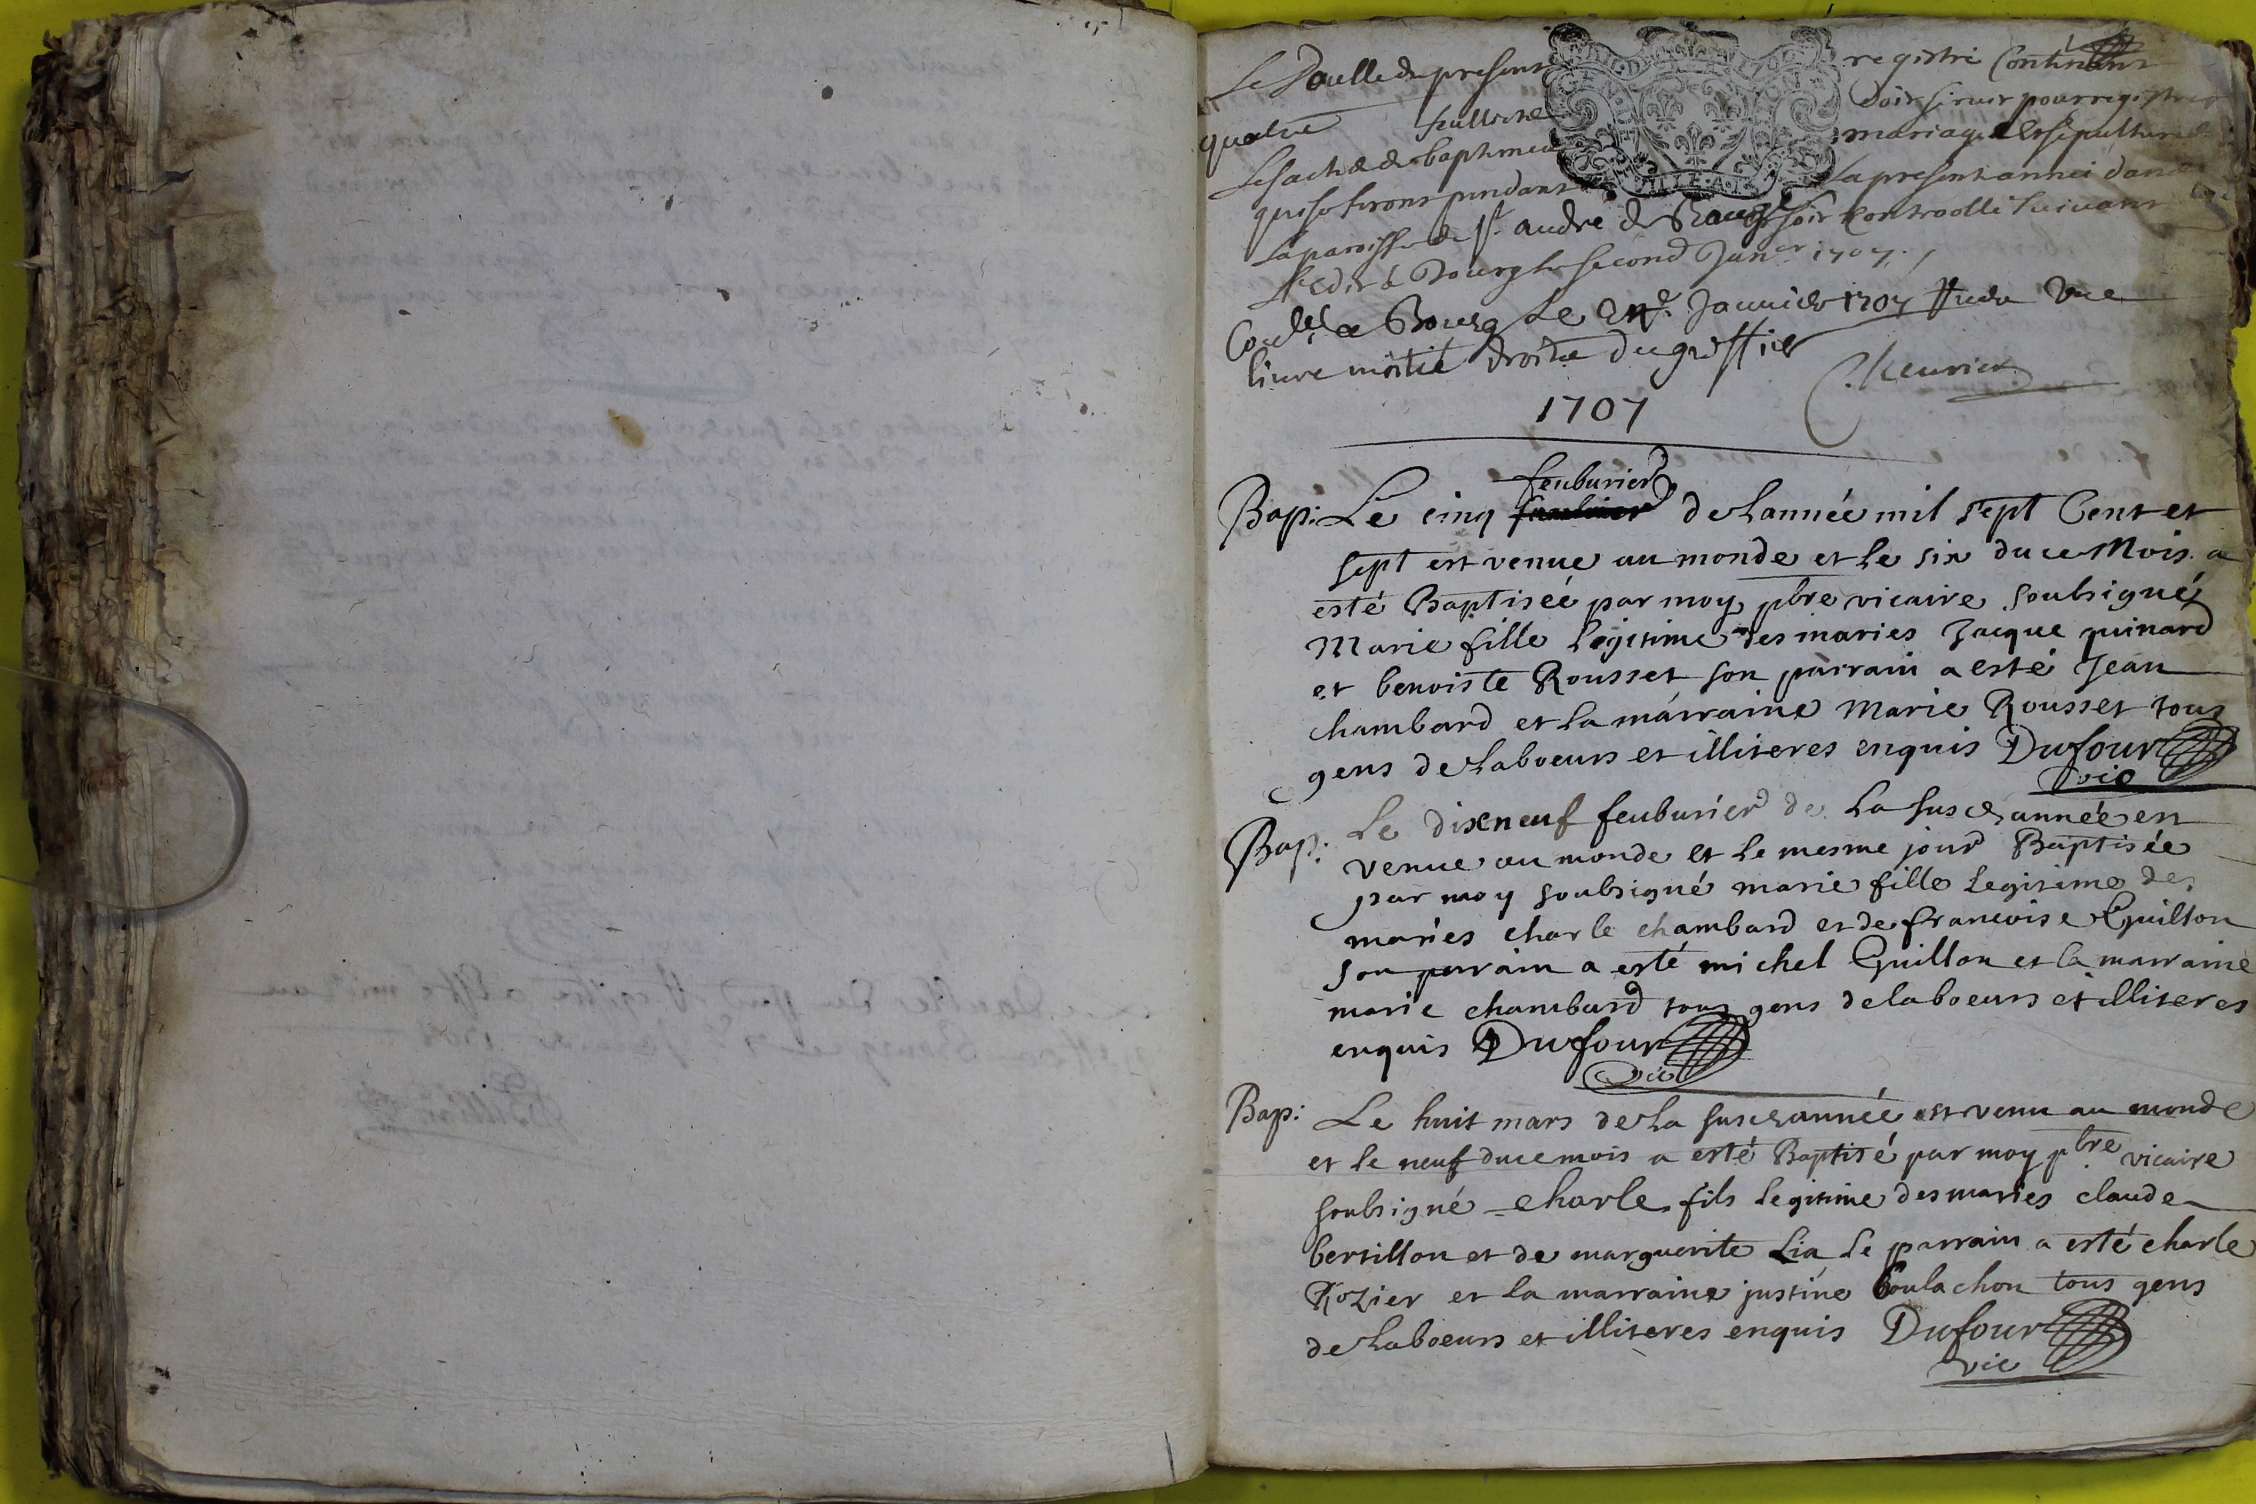 Le Double du present registre Contenant
quatre feullets doit servir pour registrer
les actes de baptemes mariages et sepultures
qui se feront pendant la presente année dans
la paroisse de st. andré de soit controollé suivant
l'edit à Bourg le second Janer 1707.
a Bourg Le 2nd. Janvier 1707 une
livre moitié droits du greffier
Cheurier
1707
Bap: Le cinq feuburier de Lannée mil sept Cent et
sept est venue au monde et le six du ce Mois a
esté Baptiseé par moy pbre vicaire soubsigné
Marie fille legitime des maries Jacque guinard
et benoiste Rousset son parrain a esté Jean
chambard et la marraine Marie Rousset tous
gens de Laboeurs et illiteres enquis Dufour
vic
Bap: Le dixneuf feuburier de La susd. année est
venue au monde et le mesme jour Baptisée
par moy soubsigné marie fille legitime des
mariés charle chambard et de francoise Guillon
son parrain a esté michel Guillon et la marraine
marie chambard tous gens de laboeurs et illiteres
enquis Dufour
vic
Bap: Le huit mars de La susd. année est venu au monde
et le neuf du ce mois a esté Baptisé par moy pbre vicaire
soubsigné charle fils legitime des maries claude
bertillon et de marguerite Lia Le parrain a esté charle
Rozier et la marraine justine boulachon tous gens
de Laboeurs et illiteres enquis Dufour
vic